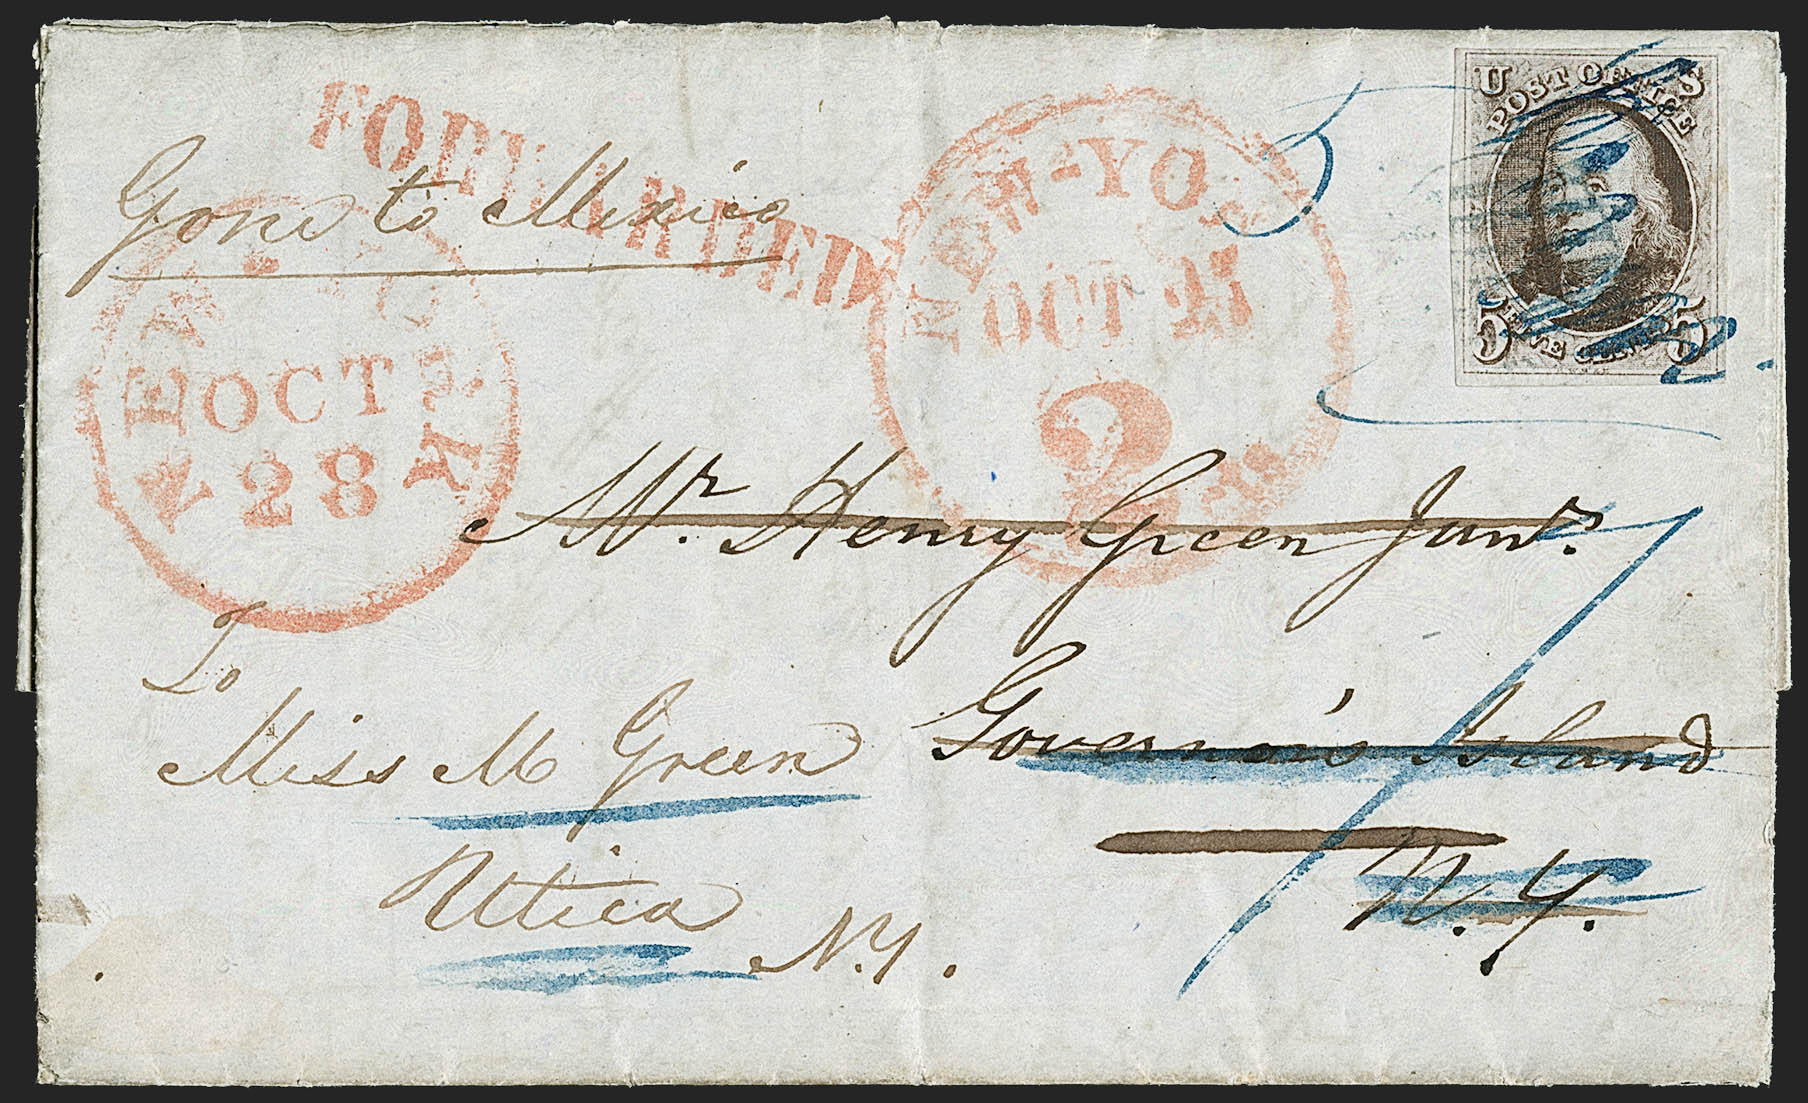 FORWARDED
Gone to Mexico
NEW-YORK
OCT
28
NEW-YO
OCT
2 cts
5
U S
POST OFFICE
FIVE CENTS
5 5
Mr. Henry Green Junr.
Governor's Island
N.Y.
To
Miss M Green
Utica
N.Y.